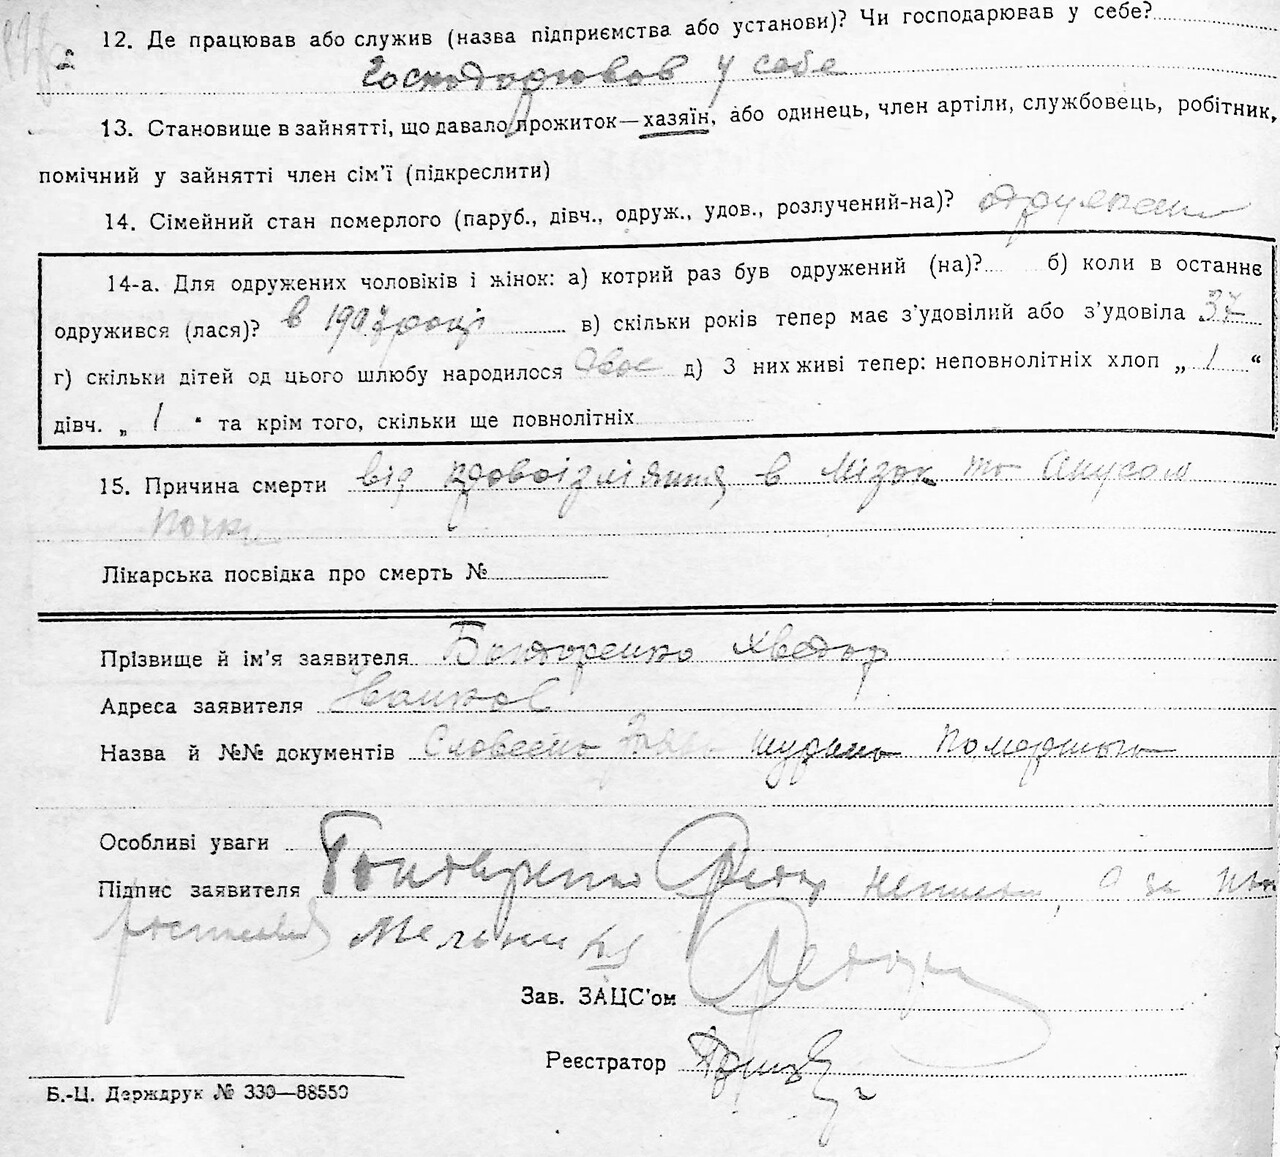 12. Де працював або служив (назва підприємства або установи)? Чи господарював у себе?
Господорював у себе
13. Становище в зайнятті, що давало прожиток—хазяїн, або одинець, член артіли, службовець, робітник,
помічний у зайнятті член сім'ї (підкреслити)
14. Сімейний стан померлого (паруб., дівч., одруж., удов., розлучений-на)?
14-а. Для одружених чоловіків і жінок: а) котрий раз був одружений (на)? б) коли в останнє
одружився (лася)? в 1907 році в) скільки років тепер має з'удовілий або з'удовіла 37
г) скільки дітей од цього шлюбу народилося двоє д) З них живі тепер: неповнолітніх хлоп „ 1 “
дівч. „ 1 “ та крім того, скільки ще повнолітніх
15. Причина смерти від в Мізок та
почки
Лікарська посвідка про смерть №
Прізвище й ім'я заявителя Бондоренко Хведор
Адреса заявителя
Назва й №№ документів Словесна Шурина Помершого
Особливі уваги
Підпис заявителя Бондаренко Федор
Мельник
Зав. ЗАЦС'ом
Реєстратор
Б.-Ц. Держдрук № 330—88550